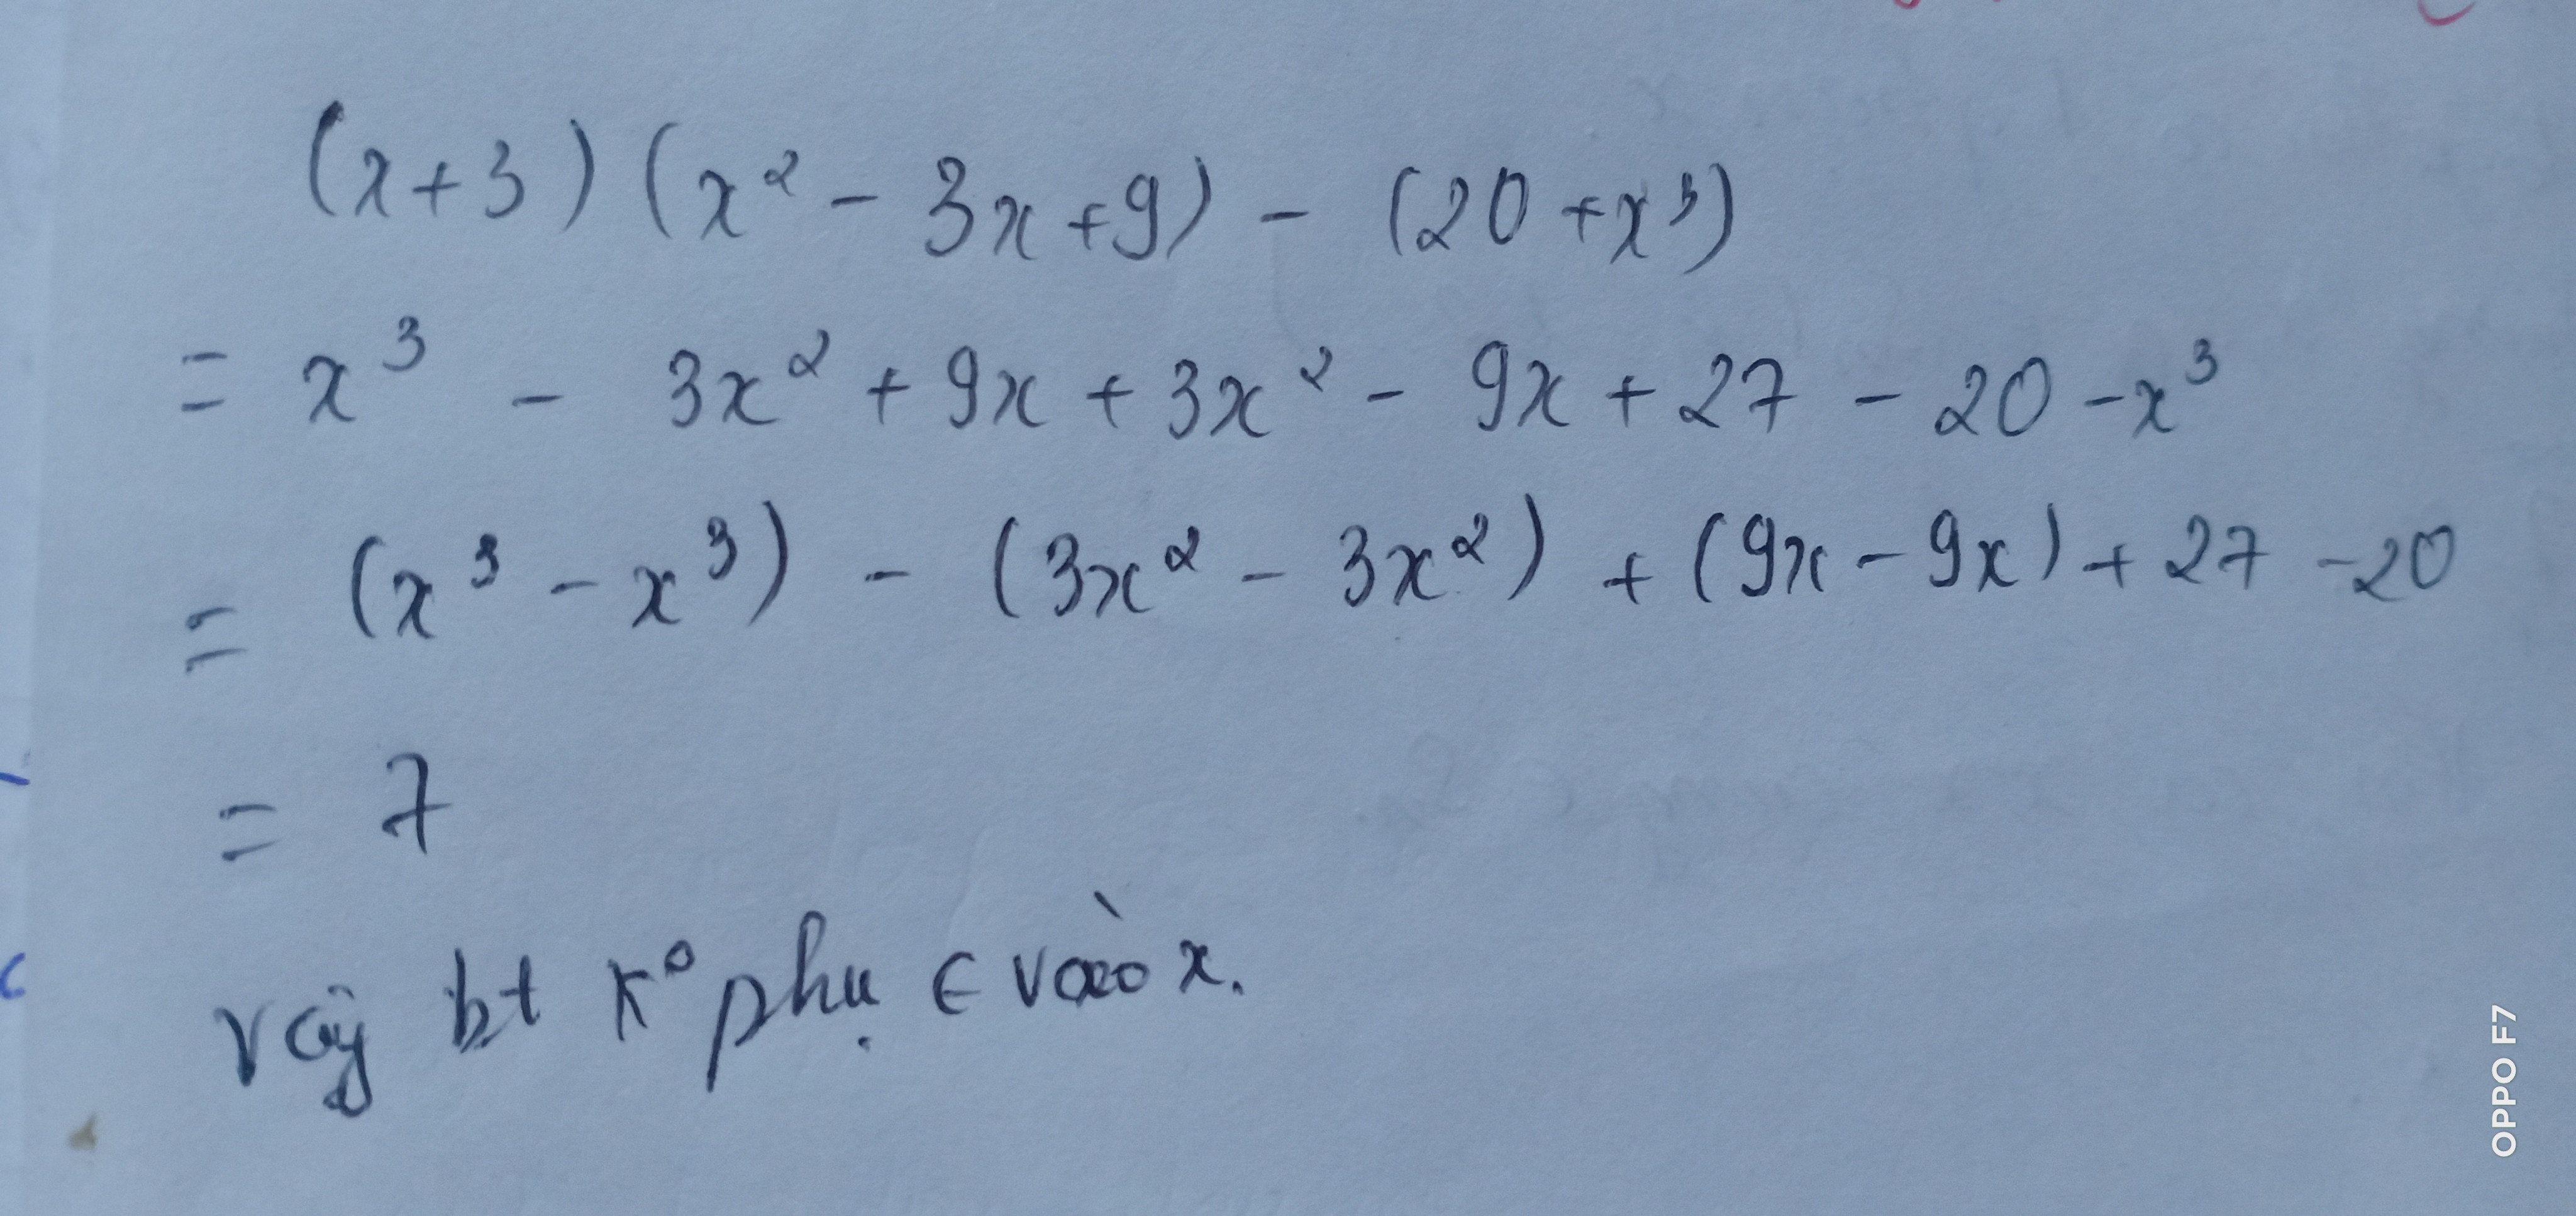 (x+3) (x² - 3x+9) - (20+x³)
= x³ - 3x² + 9x + 3x² - 9x + 27 - 20 -x³
= (x³ - x³) - (3x² - 3x²) + (9x - 9x) + 27 -20
= 7
Vậy bt k⁰ phụ ∈ vào x.
OPPO F7